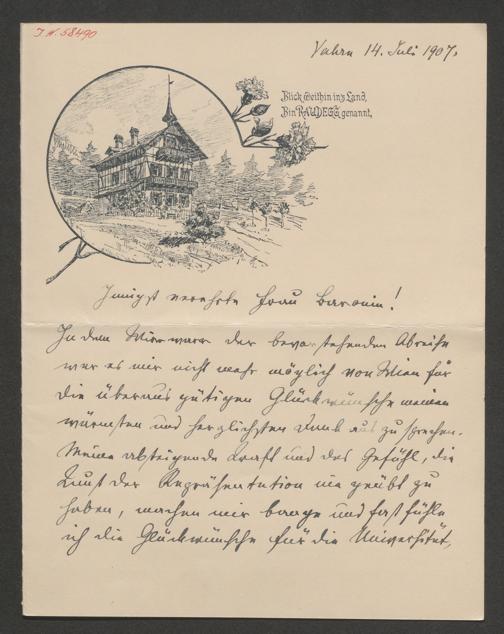 J.N. 58490
Vahrn 14. Juli 1907.
Blick weithin in's Land,
Bin RAUDEGG genannt,
Innigst verehrte Frau Baronin!
In dem Wirrwarr der bevorstehenden Abreise
war es mir nicht mehr möglich von Wien für
die überaus gütigen Glückwünsche meinen
wärmsten und herzlichsten Dank auszusprechen.
Meine absteigende Kraft und das Gefühl, die
Kunst der Repräsentation nie geübt zu
haben, machen mir bange und fast fühle
ich die Glückwünsche für die Universität,